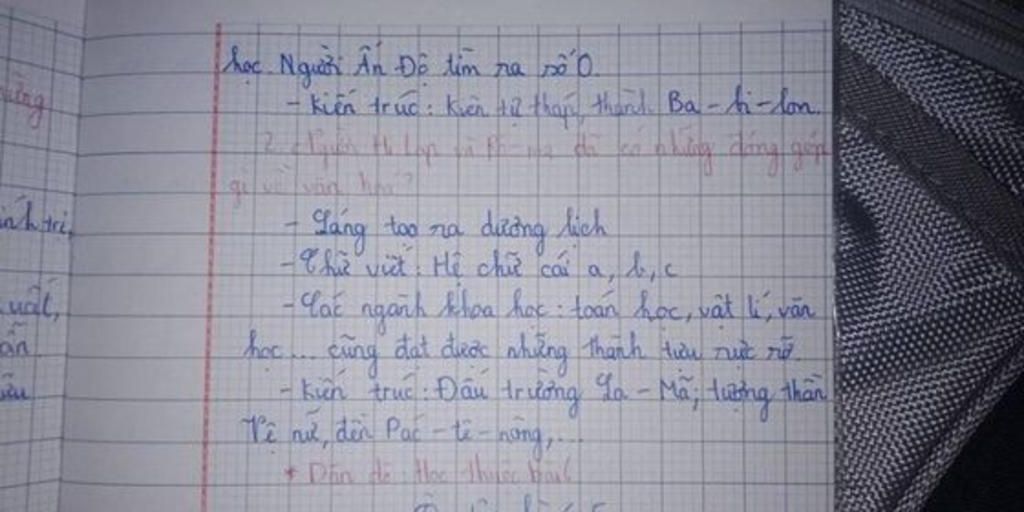 ường
học. Người Ấn Độ tìm ra số 0.
- Kiến trúc: Kiến tự tháp, thành Ba - bi - lon.
2. Người Hi Lạp và Rô-ma đã có những đóng góp
gì về văn hoá?
- Sáng tạo ra dương lịch
inh trị,
- Chữ viết: Hệ chữ cái a, b, c
- Các ngành khoa học: toán học, vật lí, văn
uất,
học... cũng đạt được những thành tựu rực rỡ.
- Kiến trúc: Đấu trường Rô - Mã, tượng thần
Vệ nữ, đền Pác - tê - nông,...
* Dặn dò: Học thuộc bài